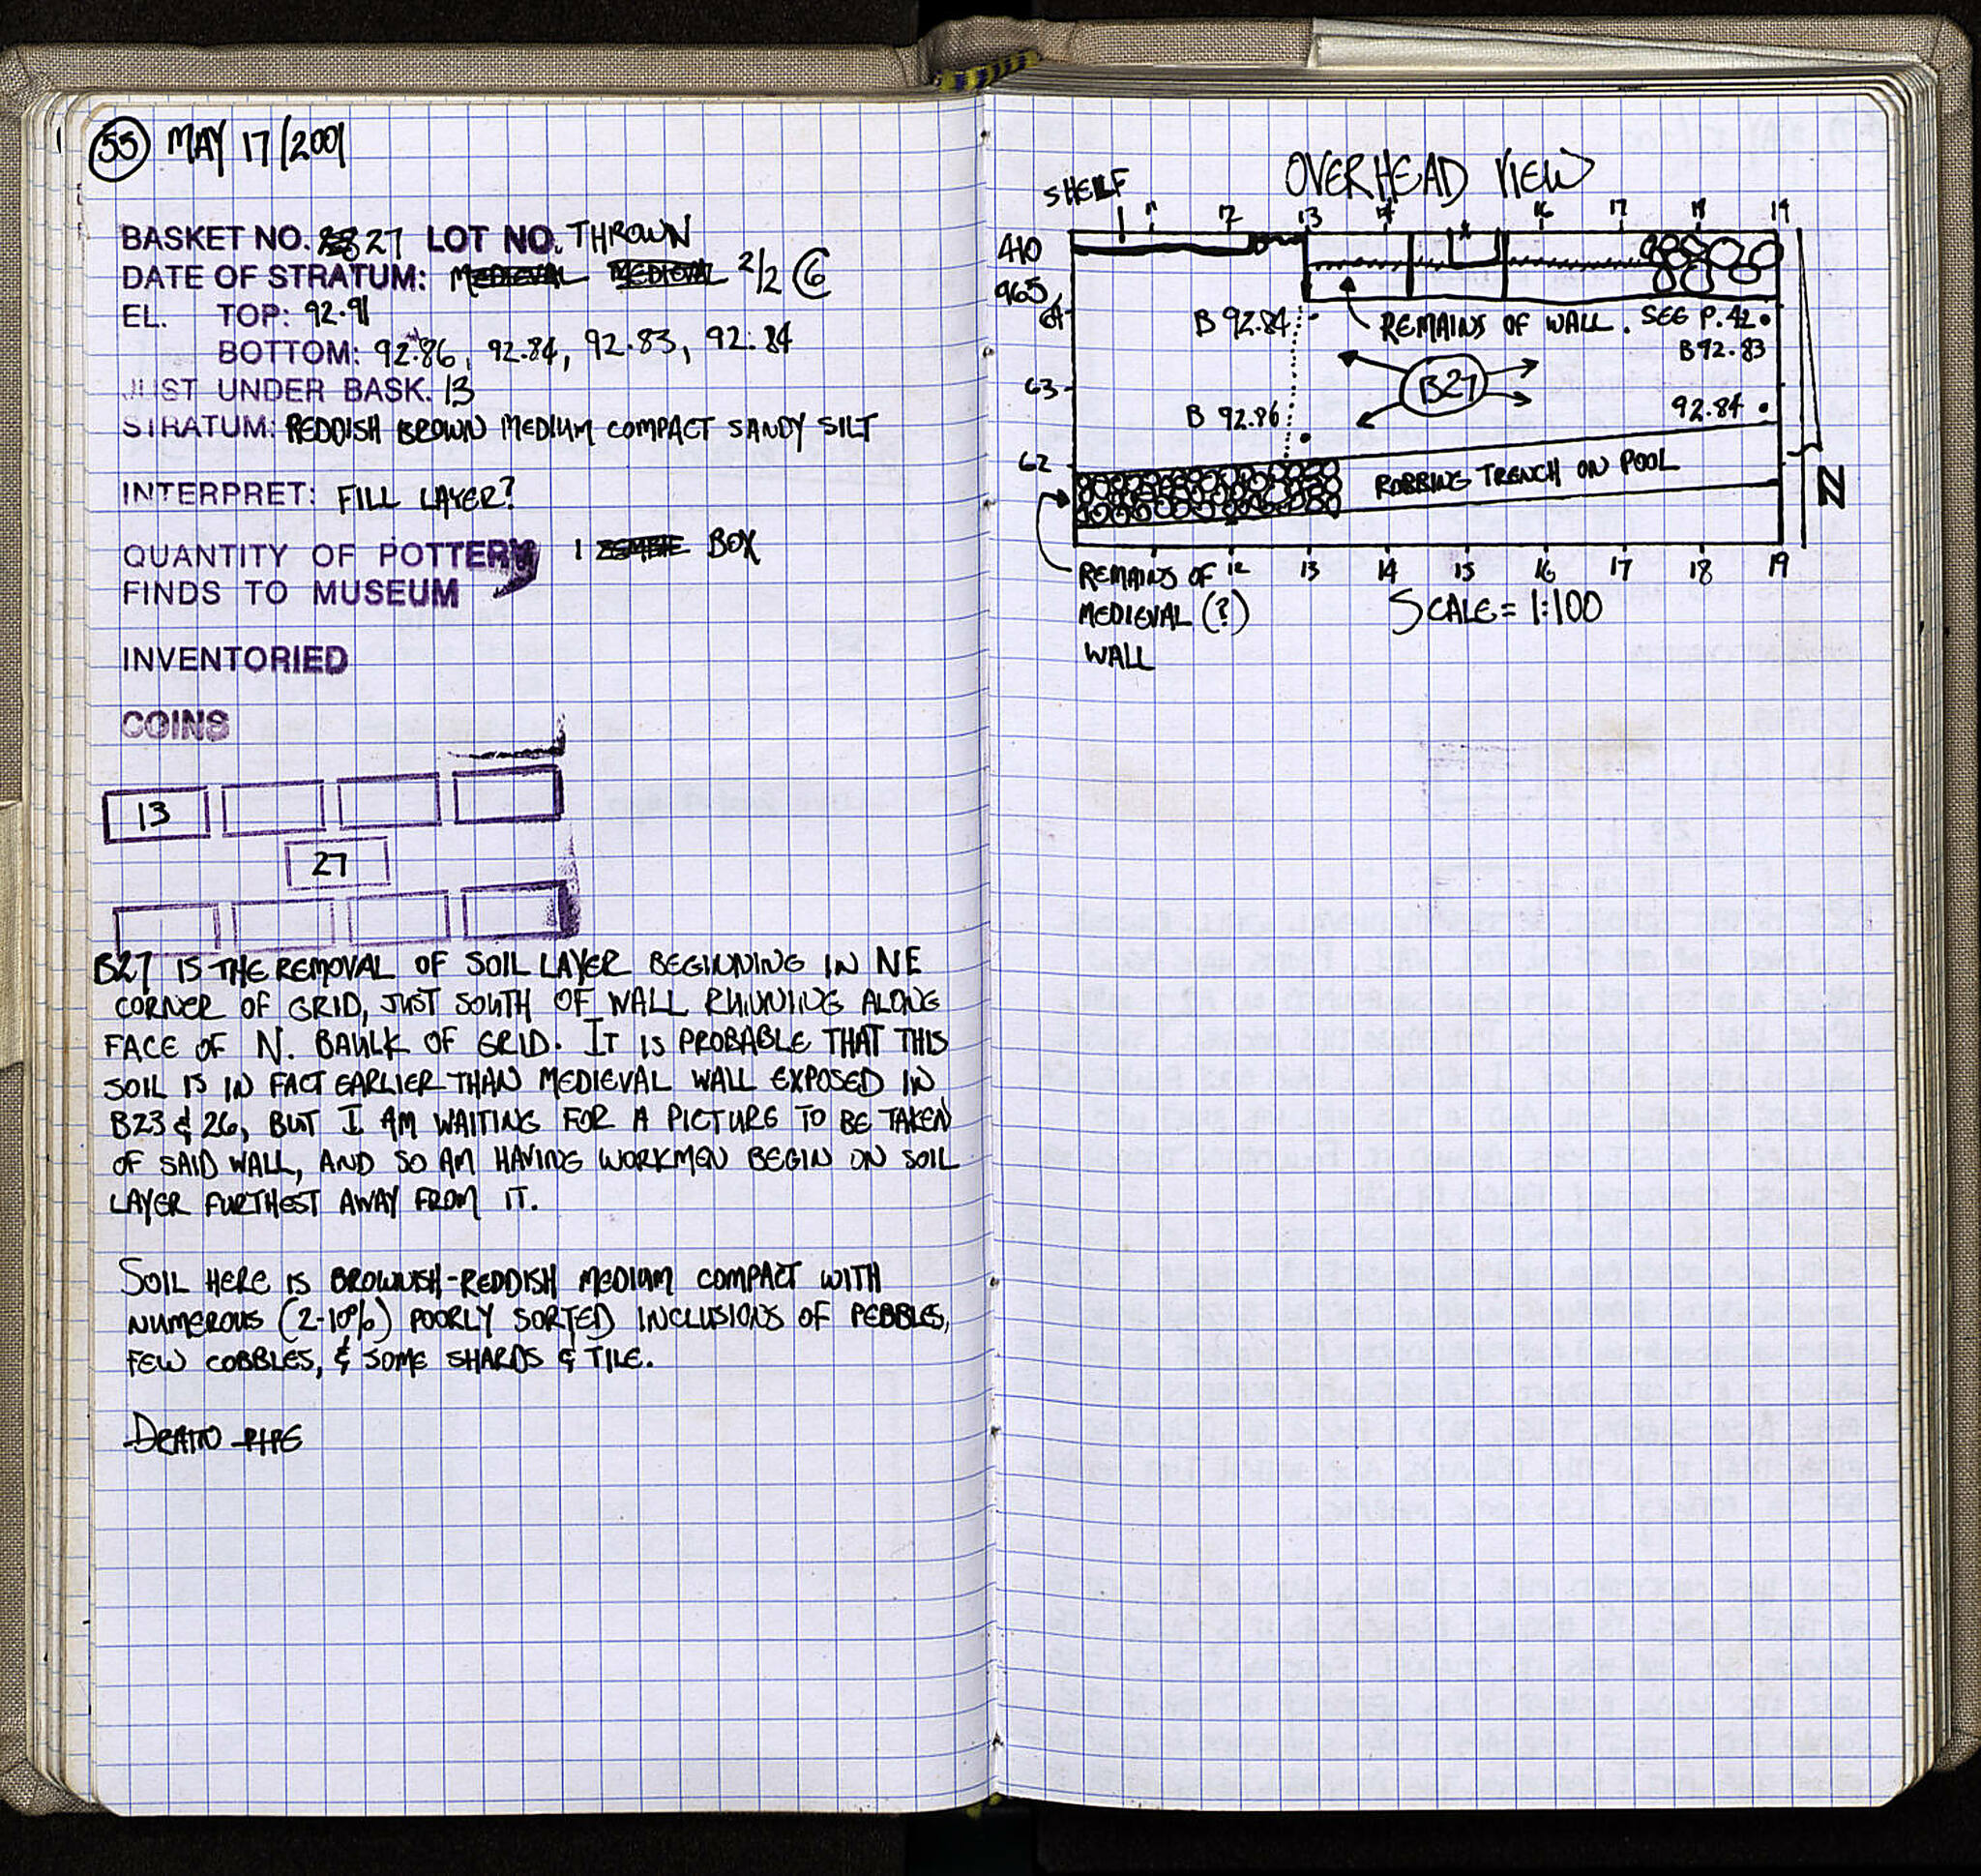 55 MAY 17/2001
BASKET NO. 27 LOT NO. THROWN
DATE OF STRATUM: MEDIEVAL MEDIEVAL 2/2 6
EL. TOP: 92.91
BOTTOM: 92.86, 92.84, 92.83, 92.84
JUST UNDER BASK. 13
STRATUM: REDDISH BROWN MEDIUM COMPACT SANDY SILT
INTERPRET: FILL LAYER?
QUANTITY OF POTTERY 1 BOX
FINDS TO MUSEUM
INVENTORIED
COINS
13
27
B27 IS THE REMOVAL OF SOIL LAYER BEGINNING IN NE
CORNER OF GRID, JUST SOUTH OF WALL RUNNING ALONG
FACE OF N. BAULK OF GRID. IT IS PROBABLE THAT THIS
SOIL IS IN FACT EARLIER THAN MEDIEVAL WALL EXPOSED IN
B23 & 26, BUT I AM WAITING FOR A PICTURE TO BE TAKEN
OF SAID WALL, AND SO AM HAVING WORKMEN BEGIN ON SOIL
LAYER FURTHEST AWAY FROM IT.
SOIL HERE IS BROWNISH-REDDISH MEDIUM COMPACT WITH
NUMEROUS (2-10%) POORLY SORTED INCLUSIONS OF PEBBLES,
FEW COBBLES, & SOME SHARDS & TILE.
OVERHEAD VIEW
SHELF
11 12 13 14 16 17 18 19
410
965
64
B 92.84
REMAINS OF WALL. SEE P.42
B92.83
63
B27
B 92.86
92.84
62
ROBBING TRENCH ON POOL
N
12 13 14 15 16 17 18 19
REMAINS OF
MEDIEVAL (?)
WALL
SCALE = 1:100